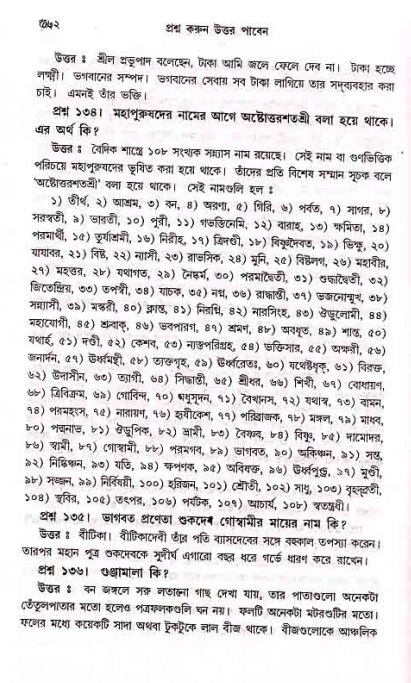 ৩৫২
প্রশ্ন করুন উত্তর পাবেন
উত্তর : শ্রীল প্রভুপাদ বলেছেন, টাকা আমি জলে ফেলে দেব না। টাকা হচ্ছে
লক্ষ্মী। ভগবানের সম্পদ। ভগবানের সেবায় সব টাকা লাগিয়ে তার সদ্‌ব্যবহার করা
চাই। এমনই তাঁর ভক্তি।
প্রশ্ন ১৩৪। মহাপুরুষদের নামের আগে অষ্টোত্তরশতশ্রী বলা হয়ে থাকে।
এর অর্থ কি?
উত্তর : বৈদিক শাস্ত্রে ১০৮ সংখ্যক সন্ন্যাস নাম রয়েছে। সেই নাম বা গুণভিত্তিক
পরিচয়ে মহাপুরুষদের ভূষিত করা হয়ে থাকে। তাঁদের প্রতি বিশেষ সম্মান সূচক বলে
'অষ্টোত্তরশতশ্রী' বলা হয়ে থাকে। সেই নামগুলি হল :
১) তীর্থ, ২) আশ্রম, ৩) বন, ৪) অরণ্য, ৫) গিরি, ৬) পর্বত, ৭) সাগর, ৮)
সরস্বতী, ৯) ভারতী, ১০) পুরী, ১১) গভস্তিনেমি, ১২) বারাহ, ১৩) ক্ষমিতা, ১৪)
পরমার্থী, ১৫) তুর্যাশ্রমী, ১৬) নিরীহ, ১৭) ত্রিদণ্ডী, ১৮) বিষ্ণুদৈবত, ১৯) ভিক্ষু, ২০)
যাযাবর, ২১) বিষ্ট, ২২) ন্যাসী, ২৩) রাভসিক, ২৪) মুনি, ২৫) বিষ্টলগ, ২৬) মহাবীর,
২৭) মহত্তর, ২৮) যথাগত, ২৯) নৈষ্কর্ম, ৩০) পরমাদ্বৈতী, ৩১) শুদ্ধাদ্বৈতী, ৩২)
জিতেন্দ্রিয়, ৩৩) তপস্বী, ৩৪) যাচক, ৩৫) নগ্ন, ৩৬) রাদ্ধান্তী, ৩৭) ভজনোন্মুখ, ৩৮)
সন্ন্যাসী, ৩৯) মস্করী, ৪০) ক্লান্ত, ৪১) নিরগ্নি, ৪২) নারসিংহ, ৪৩) ঔডুলোমী, ৪৪)
মহাযোগী, ৪৫) শ্রুবাক্, ৪৬) ভবপারগ, ৪৭) শ্রমণ, ৪৮) অবধূত, ৪৯) শান্ত, ৫০)
যথার্হ, ৫১) দণ্ডী, ৫২) কেশব, ৫৩) ন্যস্তপরিগ্রহ, ৫৪) ভক্তিসার, ৫৫) অক্ষরী, ৫৬)
জনার্দন, ৫৭) ঊর্ধ্বমন্থী, ৫৮) ত্যক্তগৃহ, ৫৯) ঊর্ধ্বরেতঃ, ৬০) যথেষ্টধৃক্, ৬১) বিরক্ত,
৬২) উদাসীন, ৬৩) ত্যাগী, ৬৪) সিদ্ধান্তী, ৬৫) শ্রীধর, ৬৬) শিখী, ৬৭) বোধায়ণ,
৬৮) ত্রিবিক্রম, ৬৯) গোবিন্দ, ৭০) মধুসূদন, ৭১) বৈখানস, ৭২) যথাস্ব, ৭৩) বামন,
৭৪) পরমহংস, ৭৫) নারায়ণ, ৭৬) হৃষীকেশ, ৭৭) পরিব্রাজক, ৭৮) মঙ্গল, ৭৯) মাধব,
৮০) পদ্মনাভ, ৮১) ঔডুপিক, ৮২) ভ্রামী, ৮৩) বৈষ্ণব, ৮৪) বিষ্ণু, ৮৫) দামোদর,
৮৬) স্বামী, ৮৭) গোস্বামী, ৮৮) পরমগব, ৮৯) ভাগবত, ৯০) অকিঞ্চন, ৯১) সন্ত,
৯২) নিষ্কিঞ্চন, ৯৩) যতি, ৯৪) ক্ষপণক, ৯৫) অবিষক্ত, ৯৬) ঊর্ধ্বপুণ্ড্র, ৯৭) মুণ্ডী,
৯৮) সজ্জন, ৯৯) নির্বিষয়ী, ১০০) হরিজন, ১০১) শ্রৌতী, ১০২) সাধু, ১০৩) বৃহদ্‌ব্রতী,
১০৪) স্থবির, ১০৫) তৎপর, ১০৬) পর্যটক, ১০৭) আচার্য, ১০৮) স্বতন্ত্রধী।
প্রশ্ন ১৩৫। ভাগবত প্রণেতা শুকদেব গোস্বামীর মায়ের নাম কি?
উত্তর : বীটিকা। বীটিকাদেবী তাঁর পতি ব্যাসদেবের সঙ্গে বহুকাল তপস্যা করেন।
তারপর মহান পুত্র শুকদেবকে সুদীর্ঘ এগারো বছর ধরে গর্ভে ধারণ করে রাখেন।
প্রশ্ন ১৩৬। গুঞ্জামালা কি?
উত্তর : বন জঙ্গলে সরু লতানো গাছ দেখা যায়, তার পাতাগুলো অনেকটা
তেঁতুলপাতার মতো হলেও পত্রফলকগুলি ঘন নয়। ফলটি অনেকটা মটরশুটির মতো।
ফলের মধ্যে কয়েকটি সাদা অথবা টুকটুকে লাল বীজ থাকে। বীজগুলোকে আঞ্চলিক